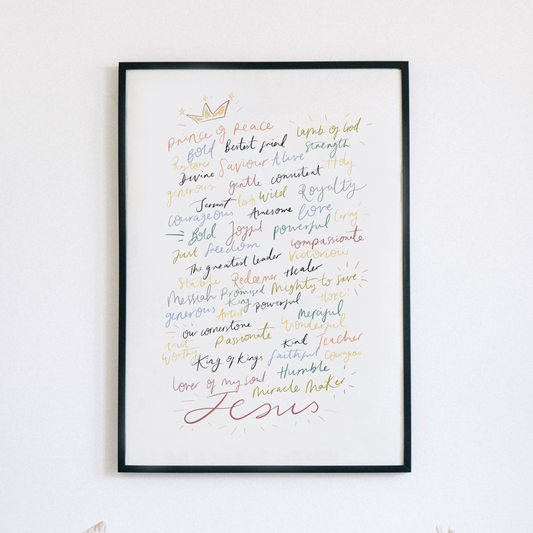 Prince of Peace Lamb of God
Bold Bestest friend Strength
Divine Saviour Alive Holy
generous gentle consistent
Servant Wild Royalty
courageous Awesome love
Bold Joyful powerful Caring
Just freedom compassionate
The greatest leader Victorious
Stable Redeemer Healer
Messiah Promised King Mighty to Save
generous Artist powerful Hope
our cornerstone Merciful
Trust Worthy Passionate Wonderful
King of Kings Kind Teacher
faithful Courageous
Lover of my soul Humble
Miracle Maker
Jesus